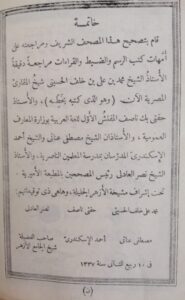 خاتمة
قام بتصحيح هذا المصحف الشريف ومراجعته على
أمهات كتب الرسم والضبط والقراءات مراجعة دقيقة
الأستاذ الشيخ محمد بن على بن خلف الحسينى شيخ المقارئ
المصرية الآن. (وهو الذى كتبه بخطه). والأستاذ
حفنى بك ناصف المفتش الأول للغة العربية بوزارة المعارف
العمومية. والأستاذان الشيخ مصطفى عنانى والشيخ أحمد
الإسكندرى المدرسان بمدرسة المعلمين الناصرية. والأستاذ
الشيخ نصر العادلى رئيس المصححين بالمطبعة الأميرية.
تحت إشراف مشيخة الأزهر الجليلة. وهاهى ذى توقيعاتهم:
محمد على خلف الحسينى حفنى ناصف نصر العادلى
مصطفى عنانى أحمد الإسكندرى صاحب الفضيلة
شيخ الجامع الأزهر
فى ١٠ ربيع الثانى سنة ١٣٣٧